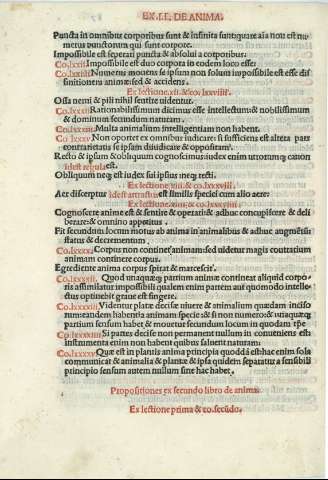 EX .LI. DE ANIMA.
Puncta in omnibus corporibus sunt & infinita sunt quare aīa non est nu
merus punctorum qui sunt corpore.
Impossibile est seperari puncta & absolui a corporibus.
Co.lxxii. Impossibile est duo corpora in eodem loco esse.
Co.lxxiii. Numerus mouens se ipsum non solum impossibile est esse dif
finitionem animæ: sed & accidens.
Ex lectione .xii. & co.lxxviii.
Ossa nerui & pili nihil sentire uidentur.
Rationabilissimum dicimus esse intellectum & nobilissimum
& dominum secundum naturam.
Multa animalium intelligentiam non habent.
Non oportet ex omnibus iudicare: si sufficiens est altera pars
contrarietatis se ipsam diiudicare & oppositam.
Recto & ipsum & obliquum cognoscimus: iudex enim utrorumque canon
idest regula est.
Obliquum neque est iudex sui ipsius neque recti.
Ex lectione .xiii. & co.lxxxvii.
Aer disceptus idest attractus est similis speciei cum alio aere.
Cognoscere animæ est & sentire & operari & adhuc concupiscere & deli
berare: & omnino appetitus.
Fit secundum locum motus ab anima in animalibus & adhuc augmentū
status & decrementum.
Corpus non continet animam: sed uidetur magis contrarium
animam continere corpus.
Egrediente anima corpus spirat & marcescit.
Quod unaquæque partium animæ contineat aliquid corpo
ris assimilatur impossibili qualem enim partem aut quomodo intelle
ctus optinebit graue est fingere.
Videntur plantæ decisæ uiuere & animalium quædam inciso
rum: eandem habentia animam specie: & si non numero: & utraque
partium sensum habet & mouetur secundum locum in quodam tpe
Si partes decisæ non permanent nullum inconueniens est
instrumenta enim non habent quibus saluent naturam:
Quæ est in plantis anima principia quoddā est: hac enim sola
communicat & animalia & plantæ & ipsa quidem separatur a sensibili
principio sensum autem nullum sine hac habet.
Propositiones ex secundo libro de anima.
Ex lectione prima & co. secūdo.